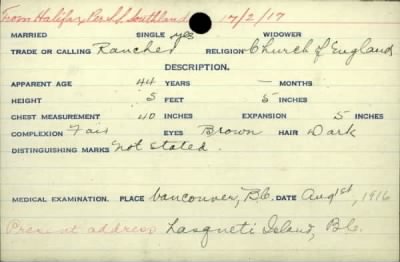 From Halifax, Per S.S. Southland 17/2/17
MARRIED SINGLE yes WIDOWER
TRADE OR CALLING Rancher RELIGION Church of England
DESCRIPTION.
APPARENT AGE 44 YEARS — MONTHS
HEIGHT 5 FEET 5 INCHES
CHEST MEASUREMENT 40 INCHES EXPANSION 5 INCHES
COMPLEXION Fair EYES Brown HAIR Dark
DISTINGUISHING MARKS Not stated.
MEDICAL EXAMINATION. PLACE Vancouver, B.C. DATE Aug 1st, 1916
Present address Lasqueti Island, B.C.